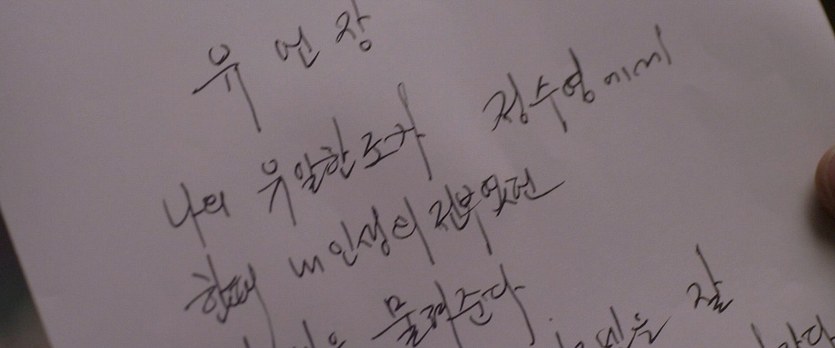 유언장
나의 유일한 조카 정수영에게
한때 내 인생의 전부였던
물려준다
잘